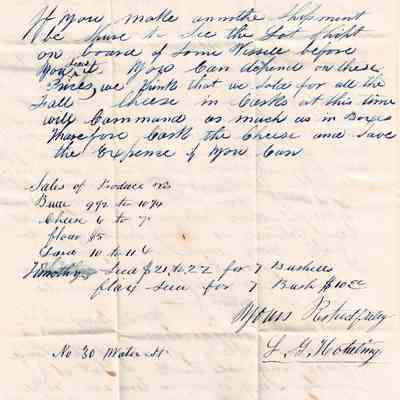 If you make annother shipment
be sure to see the Lot shipt
on board of some Vessell before
you leave You can depend on these
Prices, we think that we sold for all the
Fall Cheese in Casks at this time
will Command as much as in Boxes
Therefore Cask the Cheese and save
the Expense if you can
Sales of Produce
Butter 9½ to 10¼
Cheese 6 to 7
flour $5
Lard 10 to 11
Timothy Seed $21 to 22 for 7 Bushells
flax seed for 7 Bush $10
Yours Respectfully
No 30 Water St